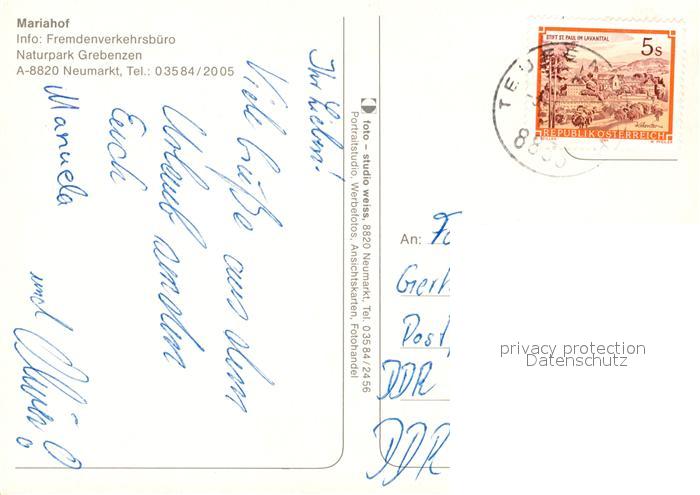 Mariahof
Info: Fremdenverkehrsbüro
Naturpark Grebenzen
A-8820 Neumarkt, Tel.: 03584/2005
Ihr Lieben!
Viele Grüße aus dem
Urlaub senden
Euch
Manuela
und
foto – studio weiss, 8820 Neumarkt, Tel. 03584/2456
Portraitstudio, Werbefotos, Ansichtskarten, Fotohandel
STIFT ST. PAUL IM LAVANTTAL
5s
REPUBLIK ÖSTERREICH
An: Fa
Gerh
Post
DDR
DDR
privacy protection
Datenschutz